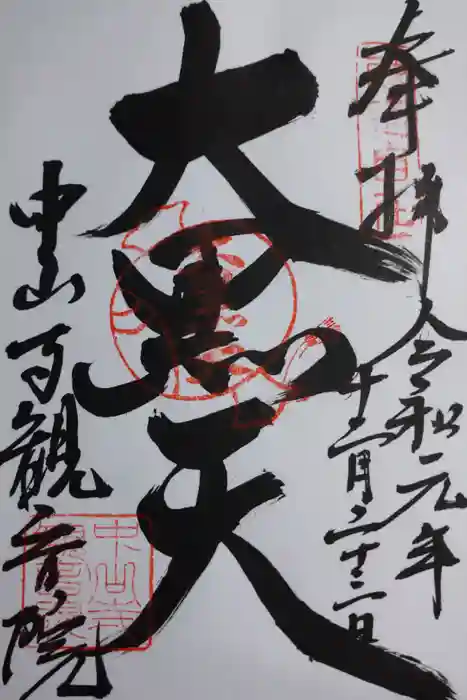 奉拝
令和元年
十二月二十三日
大黒天
中山寺観音院